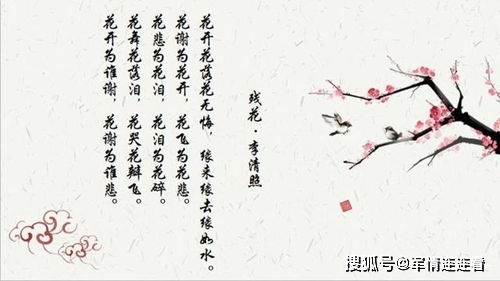 残花·李清照
花开花落花无悔，缘来缘去缘如水。
花谢为花开，花飞为花悲。
花悲为花泪，花泪为花碎。
花舞花落泪，花哭花瓣飞。
花开为谁谢，花谢为谁悲。
搜狐号@军情连连看